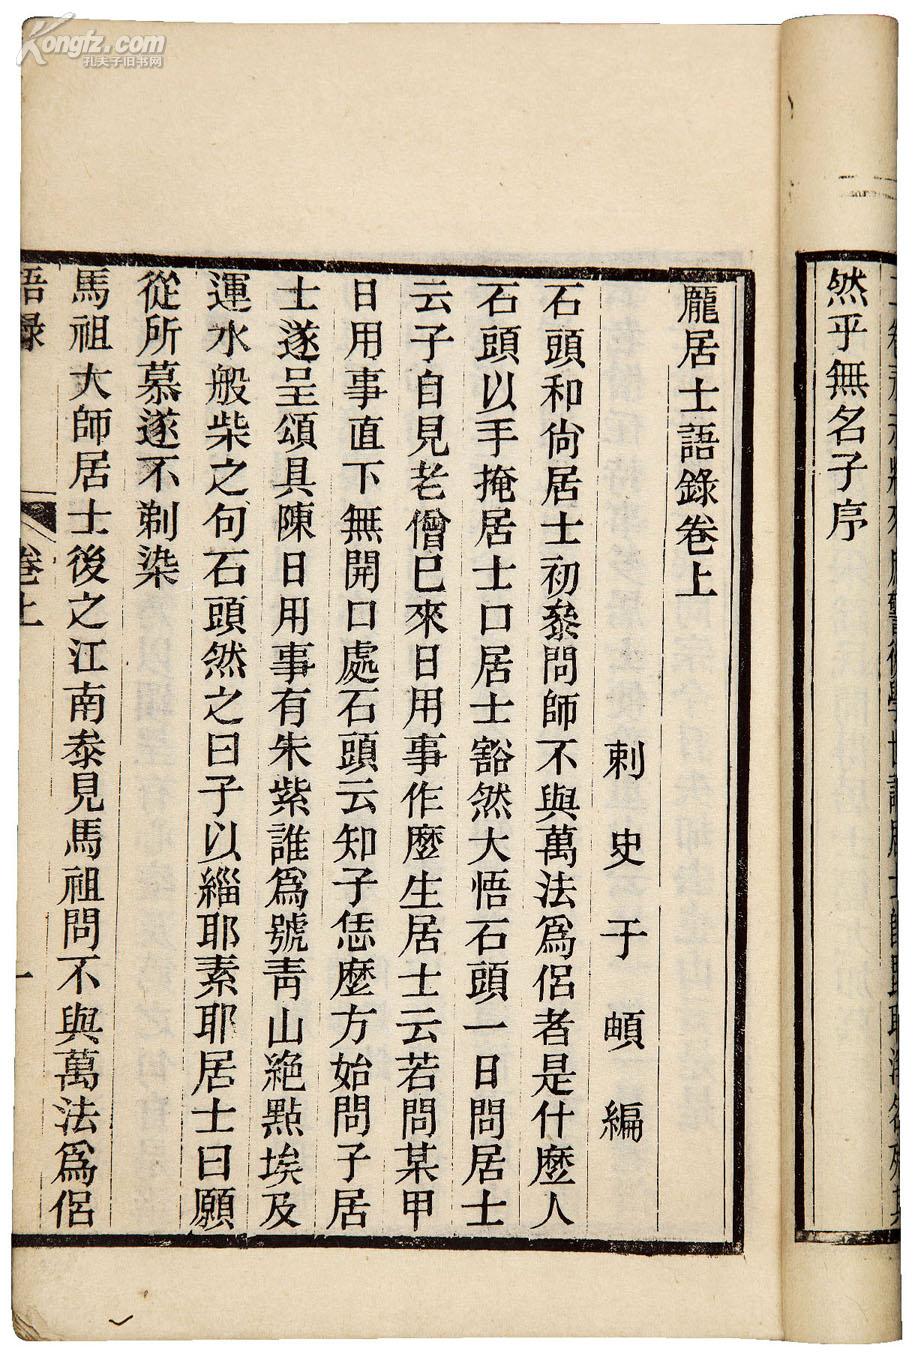 然乎無名子序
龐居士語錄卷上
刺史于頔編
石頭和尙居士初叅問師不與萬法爲侶者是什麼人
石頭以手掩居士口居士豁然大悟石頭一日問居士
云子自見老僧已來日用事作麼生居士云若問某甲
日用事直下無開口處石頭云知子恁麼方始問子居
士遂呈頌具陳日用事有朱紫誰爲號靑山絶點埃及
運水般柴之句石頭然之曰子以緇耶素耶居士曰願
從所慕遂不剃染
馬祖大師居士後之江南叅見馬祖問不與萬法爲侶
語錄 卷上 一
Kongfz.com
孔夫子旧书网